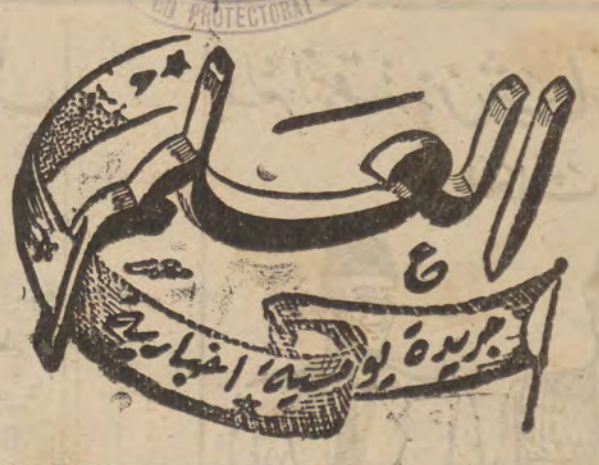 DU PROTECTORAT
العلم
جريدة يومية اخبارية